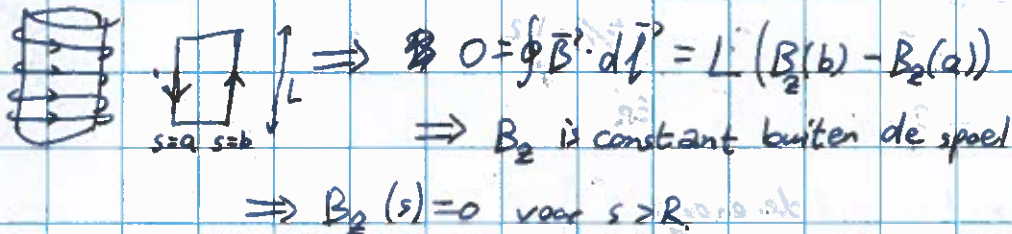 s=a s=b L ⇒ 0 = ∮ B⃗ · dl⃗ = L (B_z(b) - B_z(a))
⇒ B_z is constant buiten de spoel
⇒ B_z (s) = 0 voor s > R.